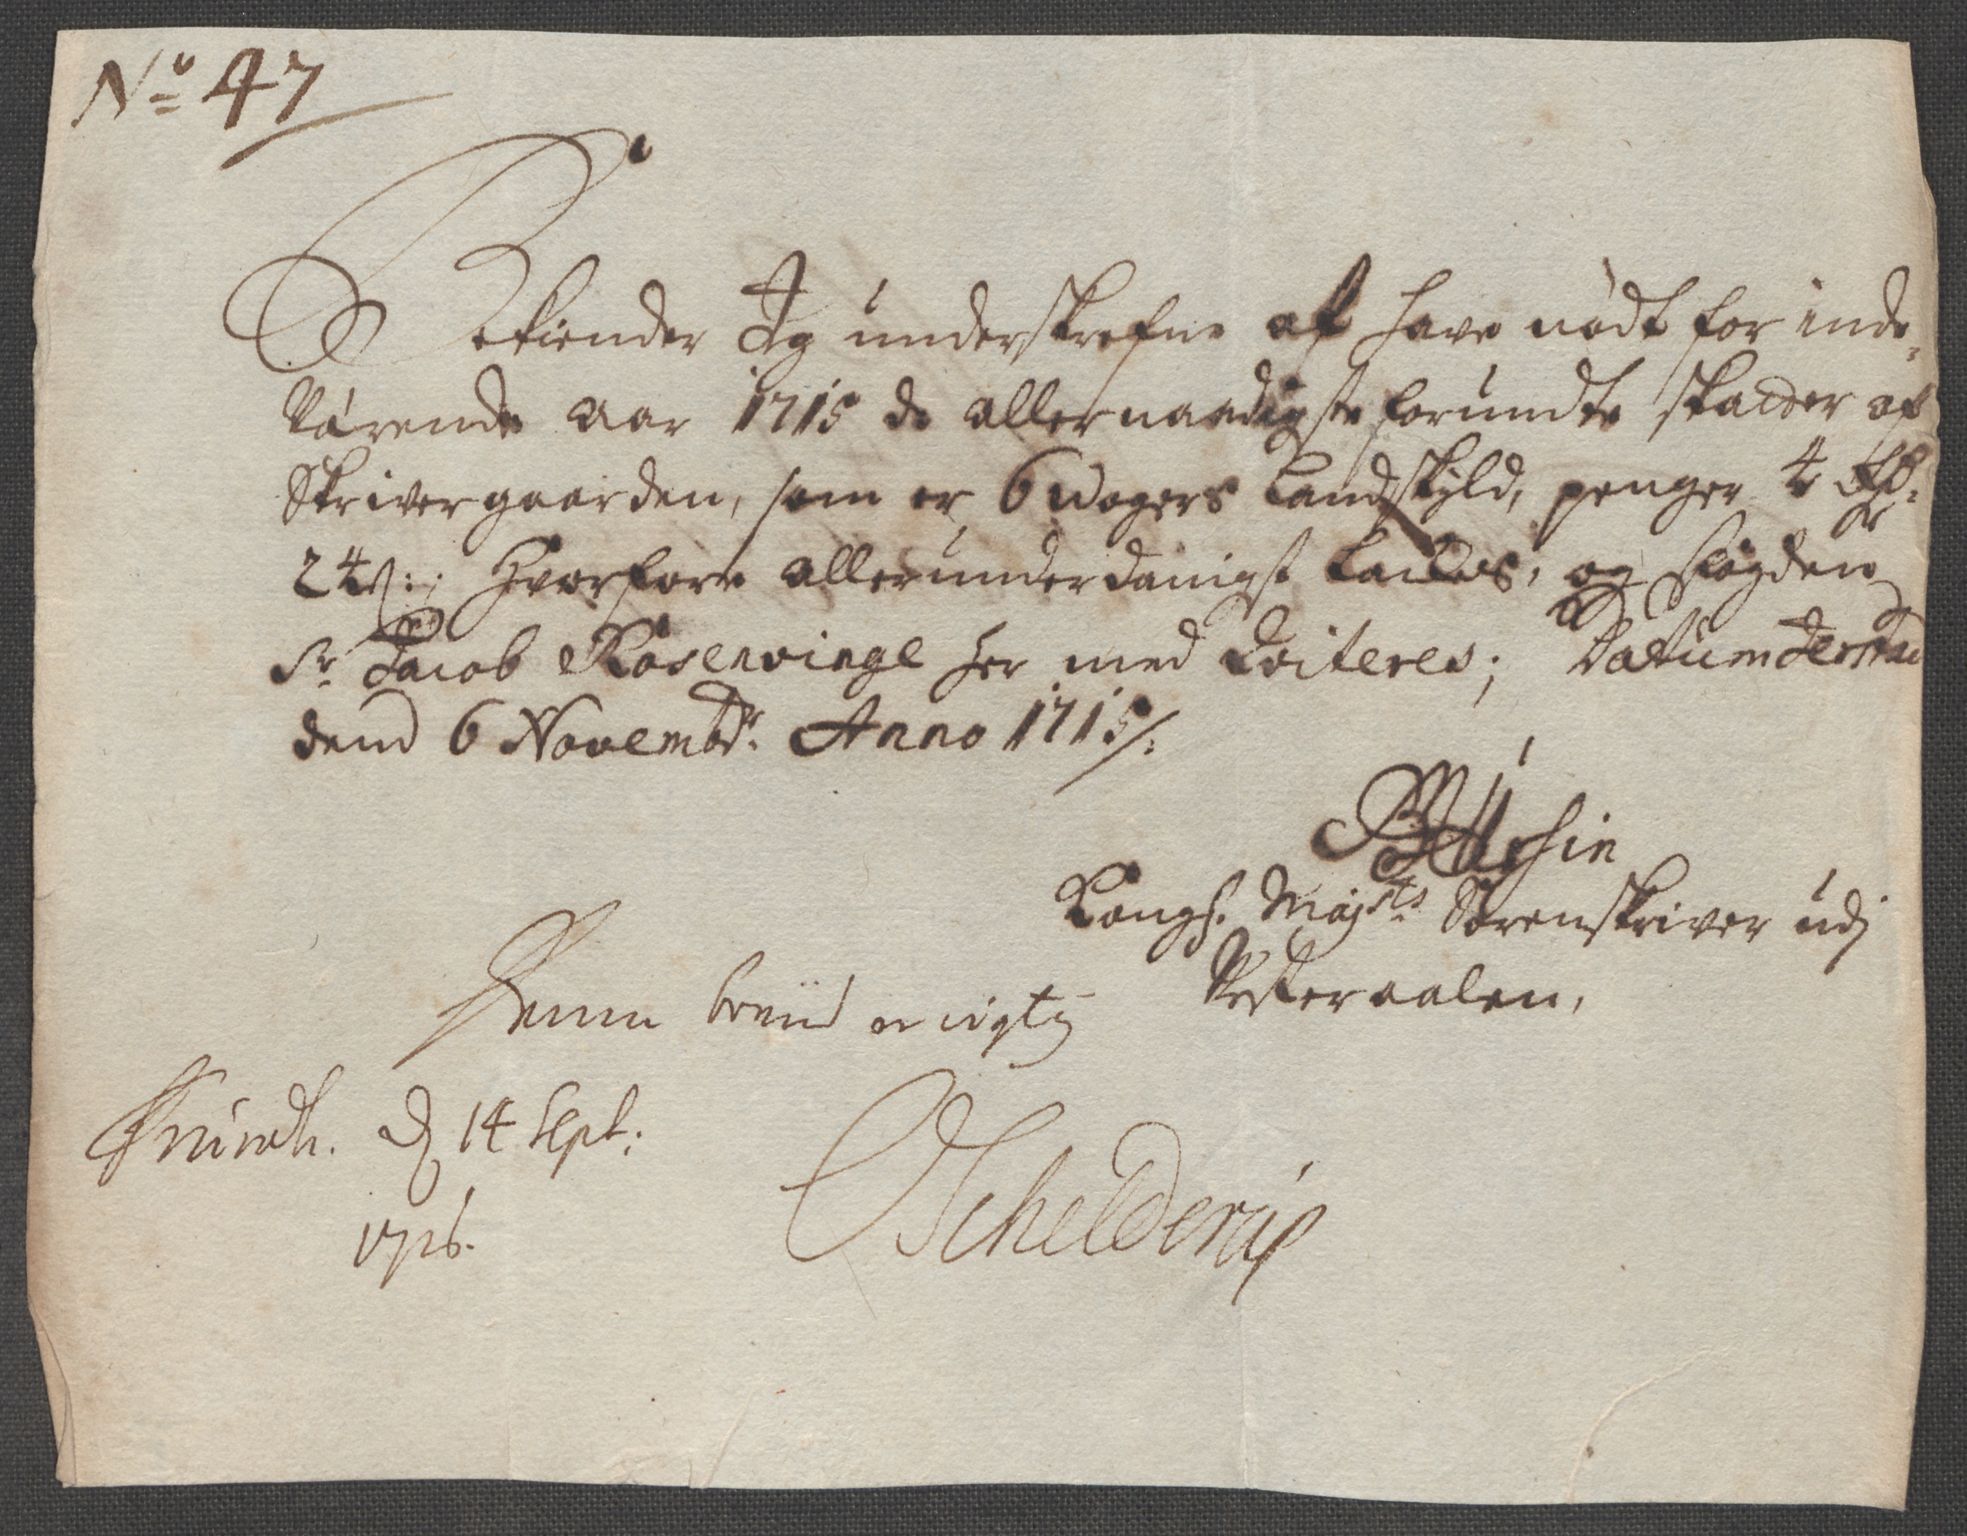 No 47
Bekiender Jeg underskrefne at have nødt for inde„
værende aar 1715 de allernaadigste forundte skatter af
Skrivergaarden, som er 6 wogers Landskyld, penger 4 Rdr:
24 s:; Hvorfore allerunderdanigst takkes, og fogden
Sr Jacob Rosenvinge her med qviteres; Datum
dend 6 Novembr. Anno 1715/:
Ursin
Kongl. Majsts Sorenskriver udj
Vesteraalen,
Denne breud er rigtig
d 14 Sept:
1716.
Schelderup